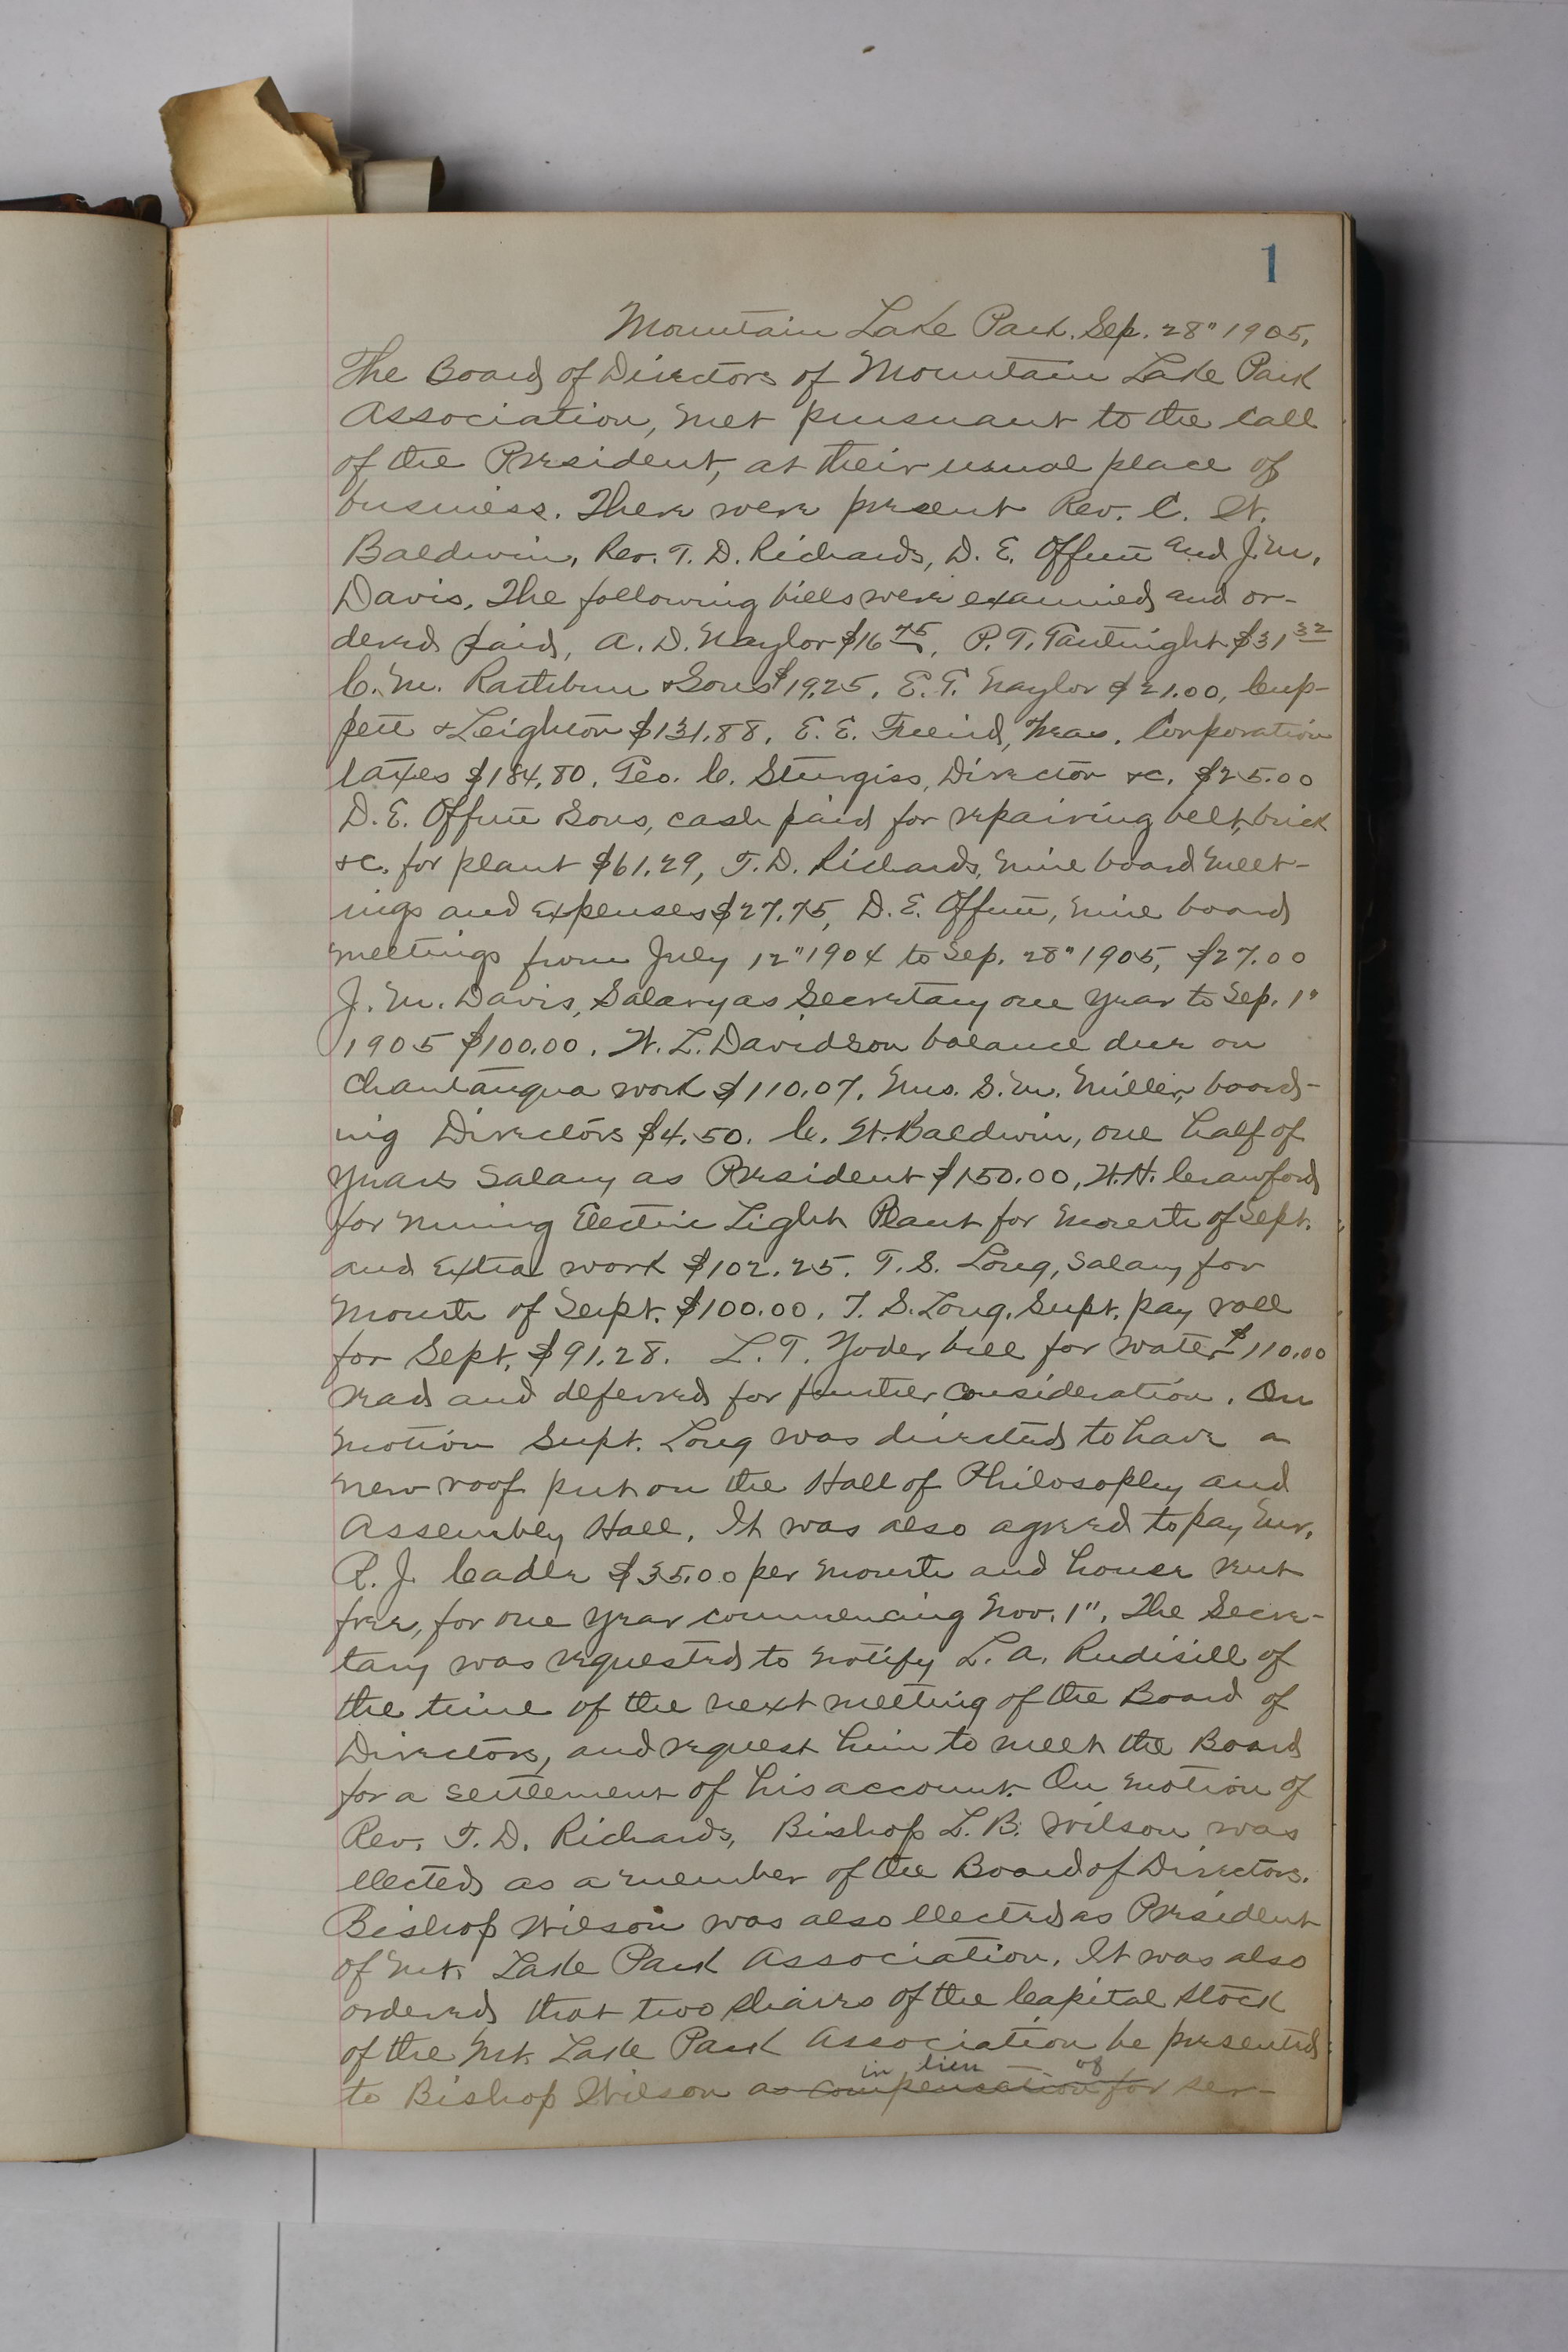 1
Mountain Lake Park. Sep. 28" 1905.
The Board of Directors of Mountain Lake Park
Association, met pursuant to the call
of the President, at their usual place of
business. There were present Rev. C. W.
Baldwin, Rev. T. D. Richards, D. E. Offutt and J. M.
Davis. The following bills were examined and or-
dered paid, A. D. Naylor $16 75, P. T. Garthright $31 32
C. M. Rathbun & Sons $19.25, E. T. Naylor $21.00, Cup-
pett & Leighton $131.88, E. E. Friend, Treas. Corporation
taxes $184.80, Geo. C. Sturgiss, Director &c. $25.00
D. E. Offutt Sons, cash paid for repairing belt, brick
&c. for plant $61.29, T. D. Richards, nine board meet-
ings and expenses $27.75, D. E. Offutt, nine board
meetings from July 12" 1904 to Sep. 28" 1905, $27.00
J. M. Davis, Salary as Secretary one year to Sep. 1"
1905 $100.00. W. L. Davidson balance due on
Chautauqua work $110.07. Mrs. S. M. Miller, board-
ing Directors $4.50. C. W. Baldwin, one half of
years Salary as President $150.00, W. H. Crawford
for running Electric Light Plant for month of Sept.
and extra work $102.25. T. S. Long, Salary for
month of Sept. $100.00. T. S. Long, Supt. pay roll
for Sept. $91.28. L. T. Yoder bill for water $110.00
read and deferred for further consideration. On
motion Supt. Long was directed to have a
new roof put on the Hall of Philosophy and
Assembly Hall. It was also agreed to pay Mr.
R. J. Caddle $35.00 per month and house rent
free, for one year commencing Nov. 1". The Secre-
tary was requested to notify L. A. Rudisill of
the time of the next meeting of the Board of
Directors, and request him to meet the Board
for a settlement of his account. On motion of
Rev. T. D. Richards, Bishop L. B. Wilson was
elected as a member of the Board of Directors.
Bishop Wilson was also elected as President
of Mt. Lake Park Association. It was also
ordered that two shares of the Capital Stock
of the Mt. Lake Park Association be presented
in lieu of
to Bishop Wilson as compensation for ser-